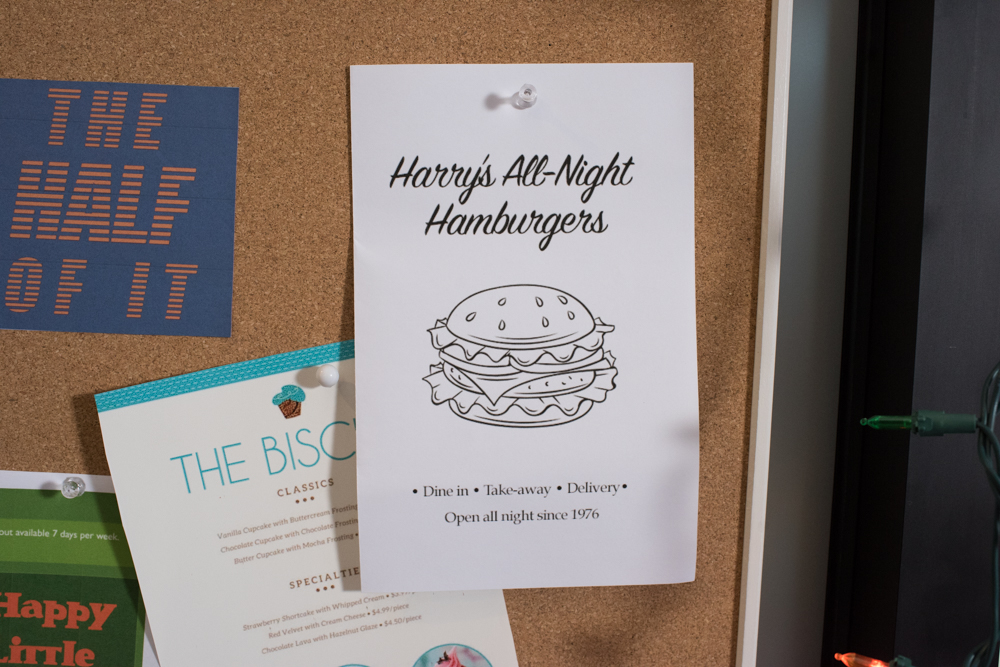 THE
HALF
OF IT
Harry's All-Night
Hamburgers
• Dine in • Take-away • Delivery •
Open all night since 1976
THE
CLASSICS
Vanilla Cupcake with Buttercream Frosting
Chocolate Cupcake with Chocolate Frosting
Butter Cupcake with Mocha Frosting •
Strawberry Shortcake with Whipped Cream •
Red Velvet with Cream Cheese • $4.99/piece
Chocolate Lava with Hazelnut Glaze • $4.50/piece
available 7 days per week.
Happy
Little